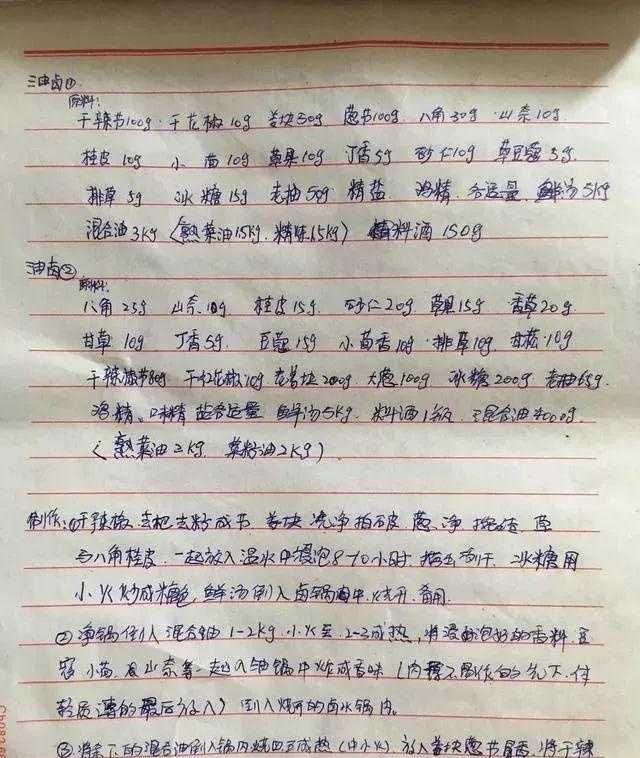 三油卤①
原料：
干辣节100g·干花椒10g 姜块50g 葱节100g 八角30g·山奈10g
桂皮10g 小茴10g 草果10g 丁香5g 砂仁10g 草豆蔻5g
排草5g 冰糖15g 老抽50g 精盐 鸡精、合适量 鲜汤5kg
混合油3kg（熟菜油1.5kg、精味1.5kg） 料酒150g
油卤②
原料：
八角25g 山奈10g 桂皮15g 砂仁20g 草果15g 香草20g
甘草10g 丁香5g 豆蔻15g 小茴香10g·排草10g 甘菘·10g
干辣椒节80g 干红花椒10g 老姜块200g 大葱100g 冰糖200g 老抽65g
鸡精、味精 盐合适量 鲜汤5kg 料酒1瓶 混合油4000g
（熟菜油2kg 菜籽油2kg）
制作：①干辣椒，去把去籽成节 姜块洗净拍破 葱净
与八角桂皮 一起放入温水中浸泡8-10小时 捞出 冰糖用
小火炒成糖色，鲜汤倒入卤锅中，烧开，备用
②净锅倒入混合油1-2kg 小火至2-3成热，将浸泡好的香料豆
蔻 小茴 及山奈等一起入油锅中炸成香味（的先下，
轻质薄的最后放入）倒入烧开的卤水锅内。
③将余下的混合油倒入锅内烧四五成热（中小火）放入姜块葱节 香，将干辣